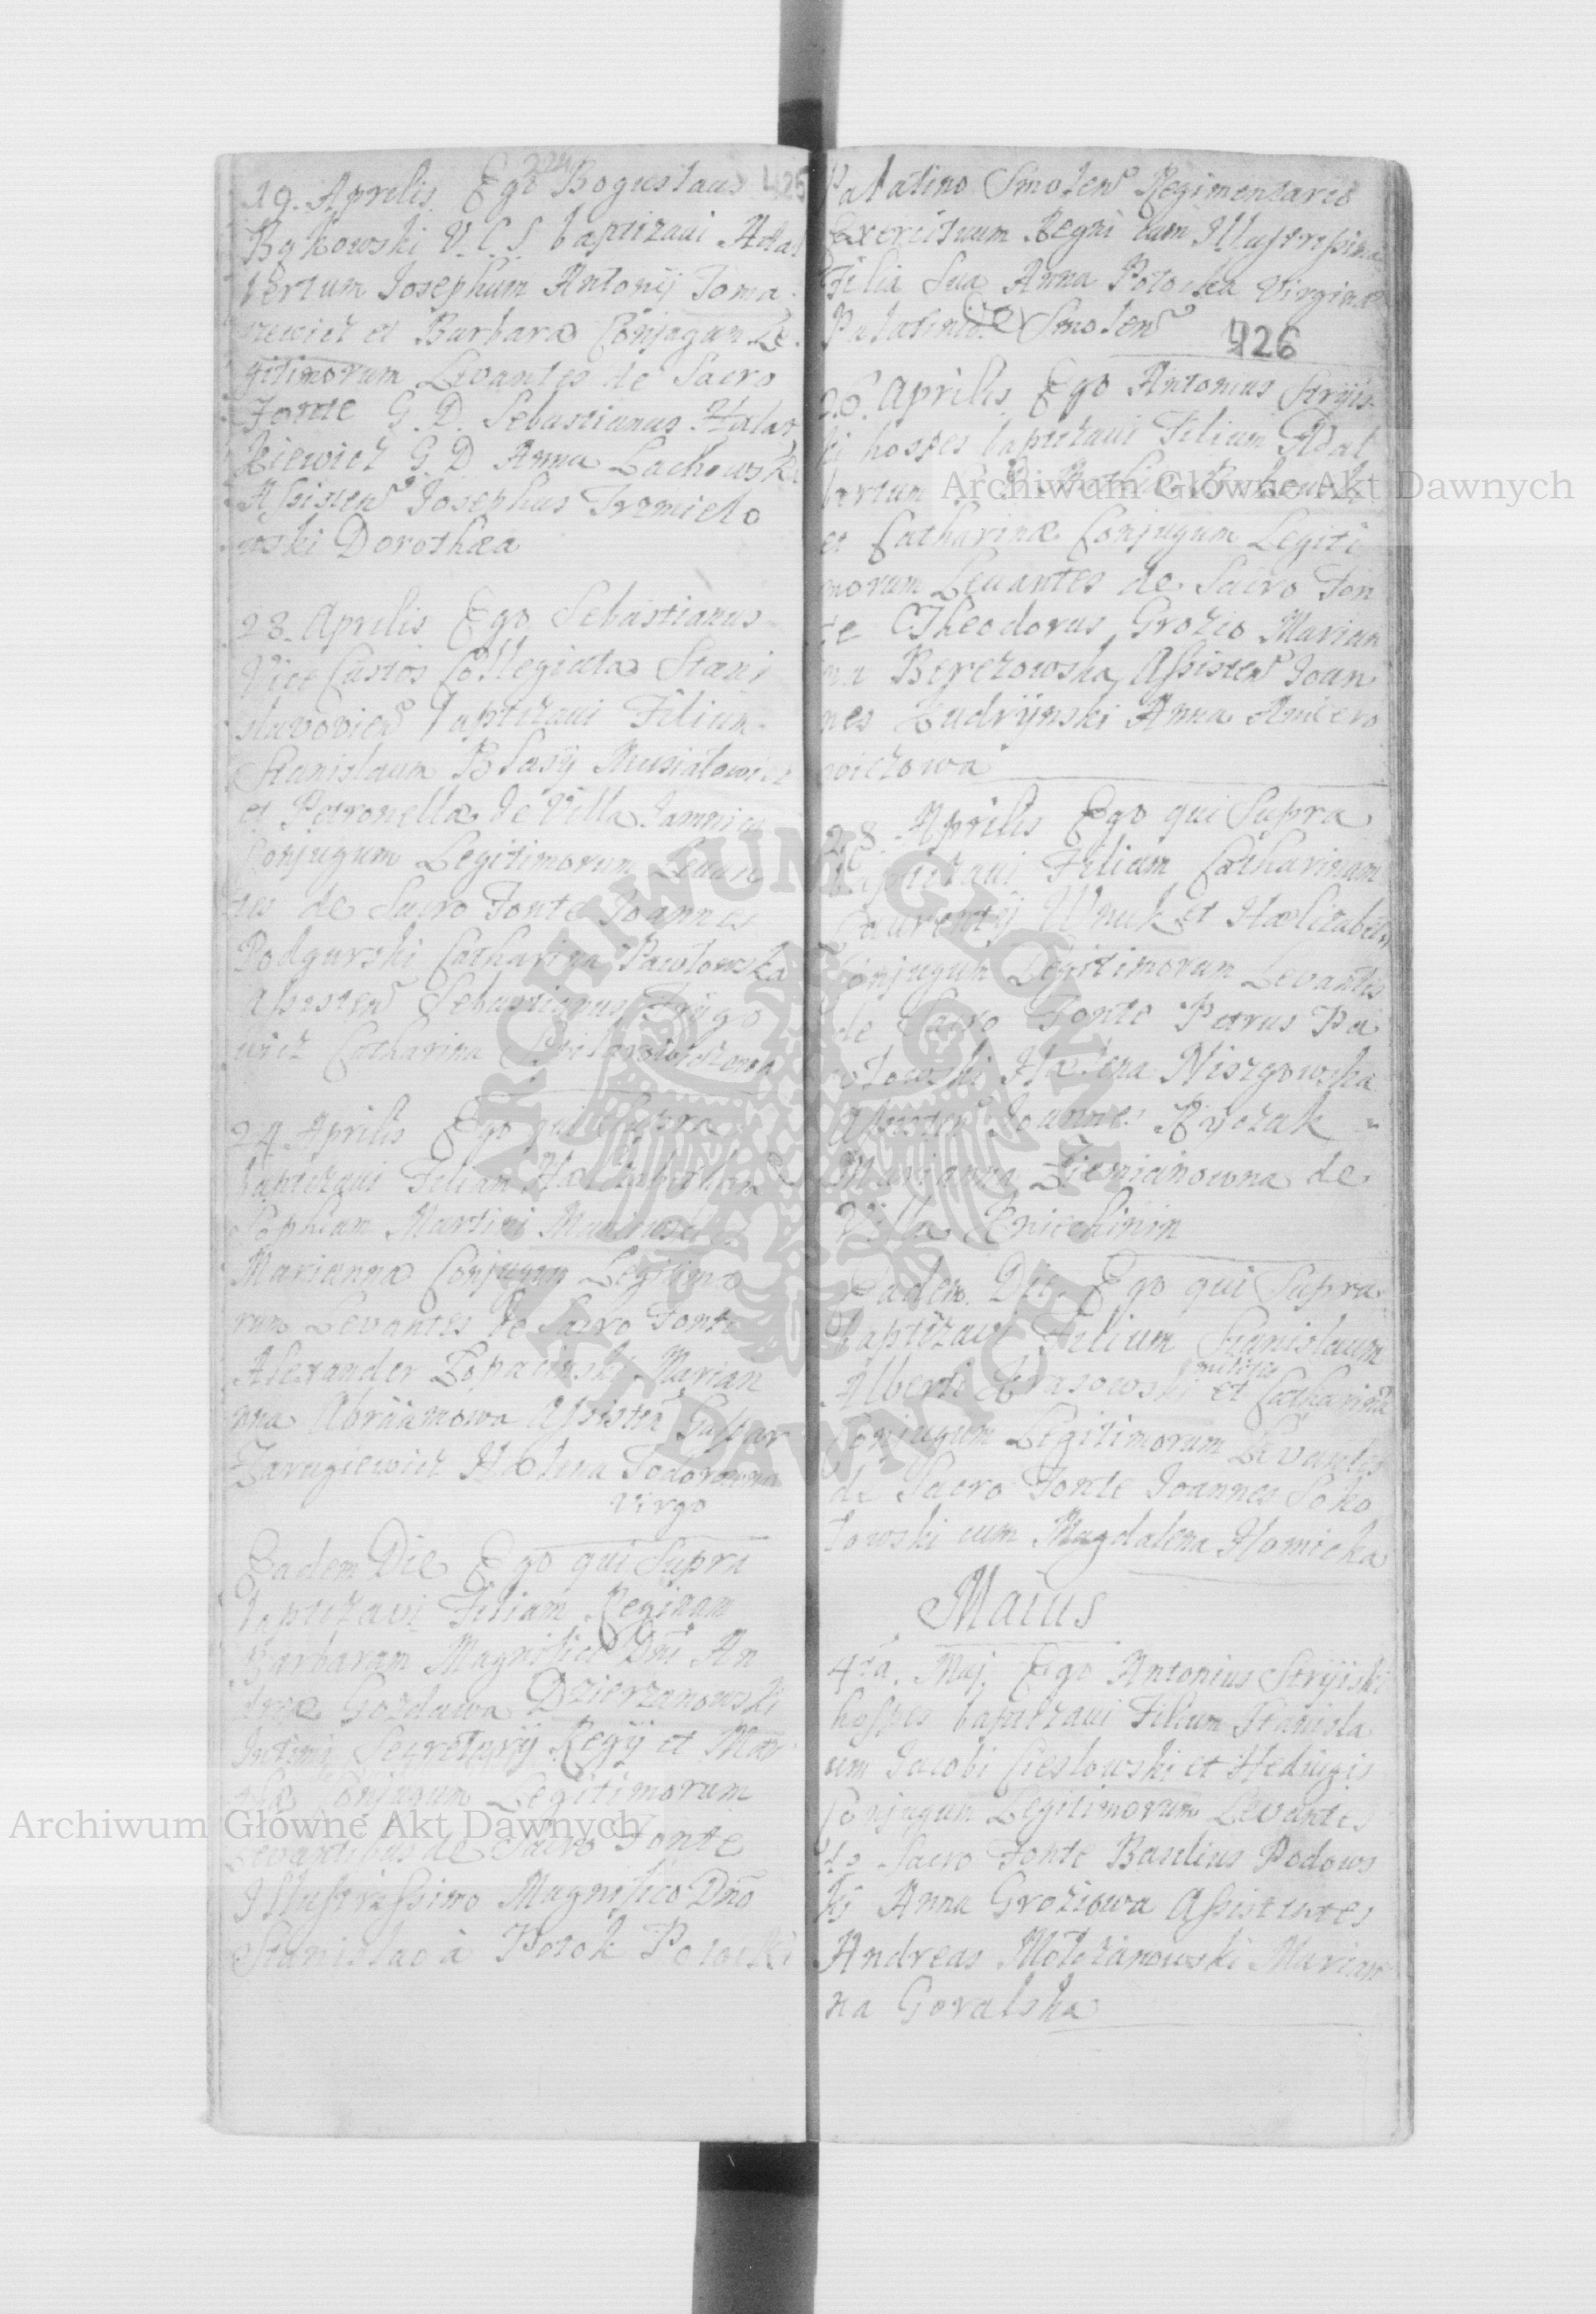 224
425
19. Aprilis Ego Bogustaus
Bąkowski V. C. S. baptizaui Adal
bertum Josephum Antonij Toma
szewicz et Barbara Conjugum Le
gitimorum Levantes de Sacro
Fonte G. D. Sebastianus
kiewicz G. D. Anna Lachowska
Assisten Josephus Trzmielo
wski Dorothæa
23. Aprilis Ego Sebastianus
Vice Custos Collegiata Stani
slavovien baptizaui Filium
Stanislaum Blasij Musiałowicz
et Petronella de Villa Jamnica
Conjugum Legitimorum Levan
tes de Sacro Fonte Joannes
Podgurski Catharina Pawłowska
Assisten Sebastianus
Catharina
24 Aprilis Ego qui Supra
baptizaui Filiam
Sophiam Martini
Marianna Conjugum Legitimo
rum Levantes de Sacro Fonte
Alexander Marian
nna Abramowa Assisten Gaspar
Zarugiewicz Hælena Todorowna
Virgo
Eadem Die Ego qui Supra
baptizaui Filiam Reginam
Barbaram Magnifici Dni An
dreæ Gozdawa Dzierzanowski
Intimi Secretarij Regij et
Conjugum Legitimorum
Levantibus de Sacro Fonte
Illustrissimo Magnifico Dno
Stanislao à Potok Potocki
Palatino Smolen Regimentario
Exercituum Regni cum Illustrissima
Filia Sua Anna Potocka Virgine
Smolen
426
26. Aprilis Ego Antonius Stryis
ki hospes baptizaui Filium Adal
bertum
et Catharinæ Conjugum Legiti
morum Levantes de Sacro Fon
te Theodorus Grozio Marian
na Berezowska, Assisten Joan
nes Kudrynski Anna
wiczowa
28. Aprilis Ego qui Supra
baptizaui Filiam Catharinam
Laurentij Wnuk et Hælizabeth
Conjugum Legitimorum Levantes
de Sacro Fonte Petrus Pa
włowski Hælena Niszgowska
Assisten Joannes Ryczak
Marianna de
Villa Knichinin
Eadem Die Ego qui Supra
baptizaui Filium Stanislaum
Alberti Krasowski militis et Catharinæ
Conjugum Legitimorum Levantes
de Sacro Fonte Joannes Soko
łowski cum Magdalena
Maius
4ta. Maj. Ego Antonius Stryiski
hospes baptizaui Filium Stanisla
um Jacobi Cieslowski et Hedwigis
Conjugum Legitimorum Levantes
de Sacro Fonte Basilius Podows
ki Anna Groziowa Assistentes
Andreas Mołczanowski Marian
na Goralska
Archiwum Główne Akt Dawnych
Archiwum Główne Akt Dawnych
ARCHIWUM GŁÓWNE
AKT DAWNYCH